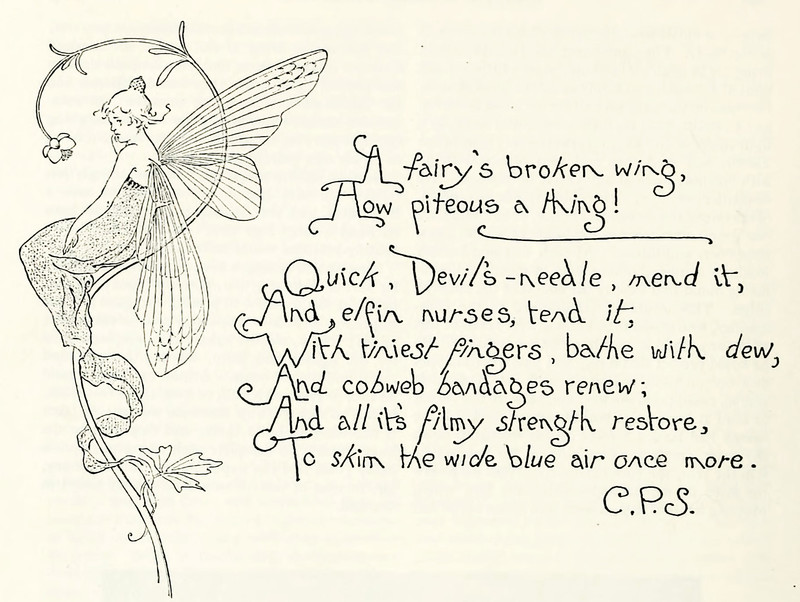 A fairy's broken wing,
How piteous a thing!
Quick, Devil's-needle, mend it,
And, elfin nurses, tend it;
With tiniest fingers, bathe with dew,
And cobweb bandages renew;
And all it's filmy strength restore,
To skim the wide blue air once more.
C.P.S.